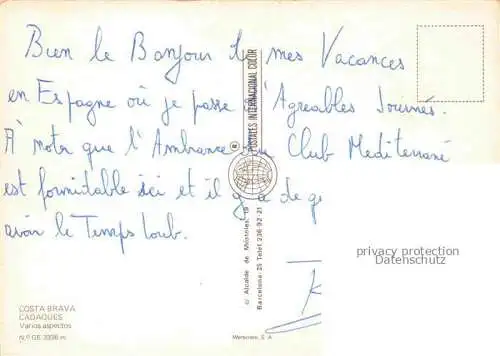 Bien le Bonjour de mes Vacances
en Espagne où je passe d'Agreables Journés.
À noter que l'Ambiance du Club Mediterrané
est formidable ici et il y a de
avoir le Temps
POSTALES INTERNACIONAL COLOR
c/ Alcalde de Móstoles, 19
Barcelona-25 Teléf. 236-92-21
privacy protection
Datenschutz
COSTA BRAVA
CADAQUES
Varios aspectos